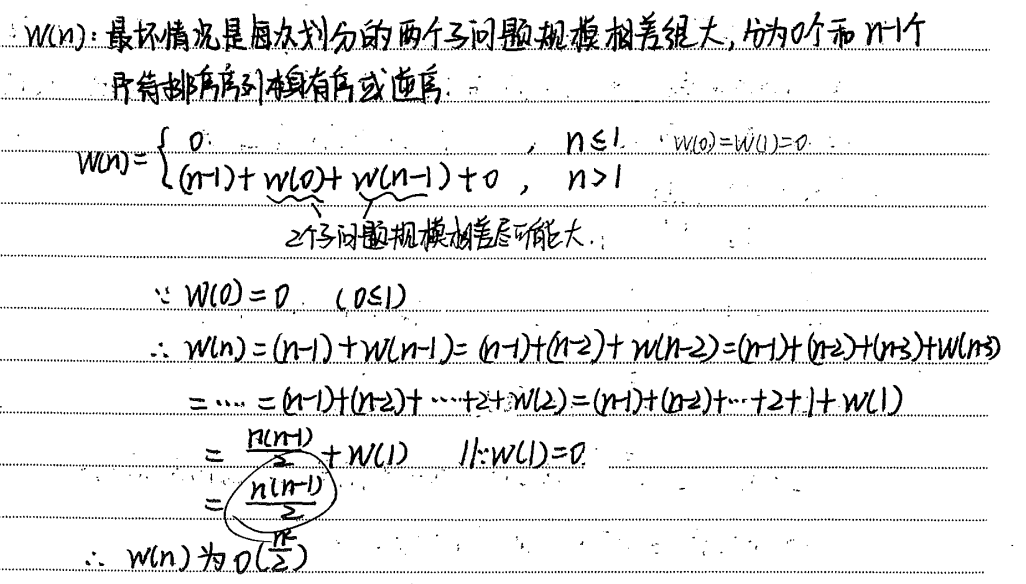 W(n): 最坏情况是每次划分的两个子问题规模相差很大, 分为0个和 n-1个
即待排序序列本身有序或逆序.
W(n)= { 0 , n≤1 W(0)=W(1)=0
(n-1)+W(0)+W(n-1)+0 , n>1
2个子问题规模相差尽可能大.
∵ W(0)=0 (0≤1)
∴ W(n)=(n-1)+W(n-1)=(n-1)+(n-2)+W(n-2)=(n-1)+(n-2)+(n-3)+W(n-3)
=····=(n-1)+(n-2)+····+2+W(2)=(n-1)+(n-2)+···+2+1+W(1)
= n(n-1)/2 + W(1) //∵W(1)=0
= n(n-1)/2
∴ W(n) 为 O(n²/2)